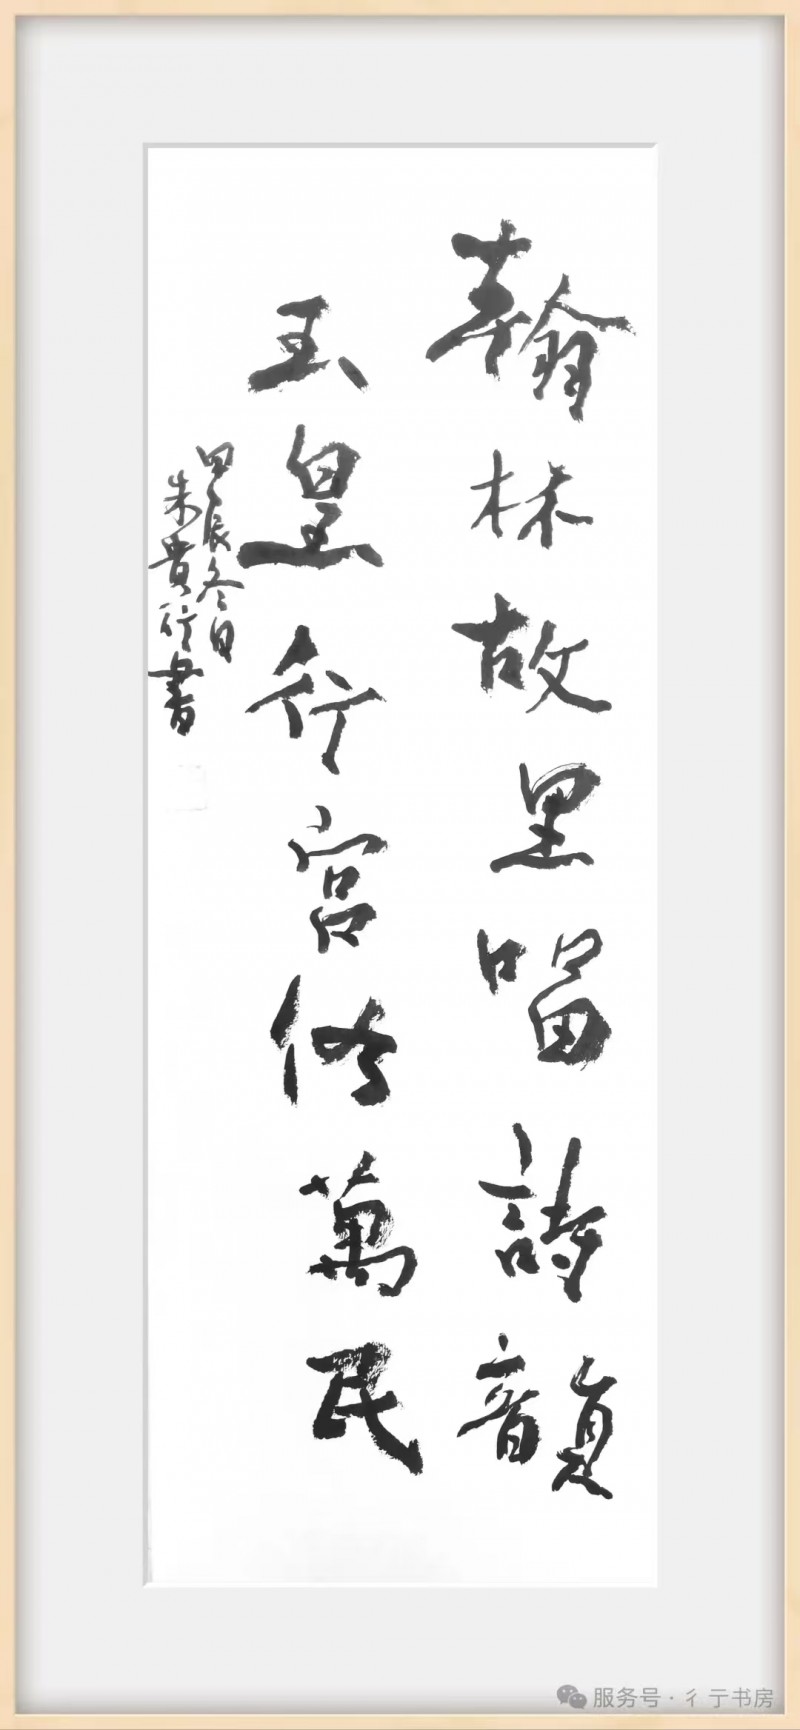 翰林故里唱詩韻
玉皇行宮修萬民
甲辰冬日
朱貴行書
服务号 · 彳亍书房